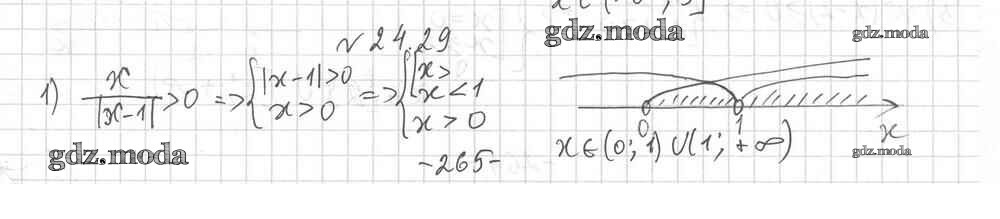 № 24.29
gdz.moda
gdz.moda
1) x/|x-1| > 0 => { |x-1|>0 x>0 => { [ x> x<1 x>0
0 1 x
x∈(0; 1) ∪ (1; +∞)
gdz.moda
gdz.moda
-265-